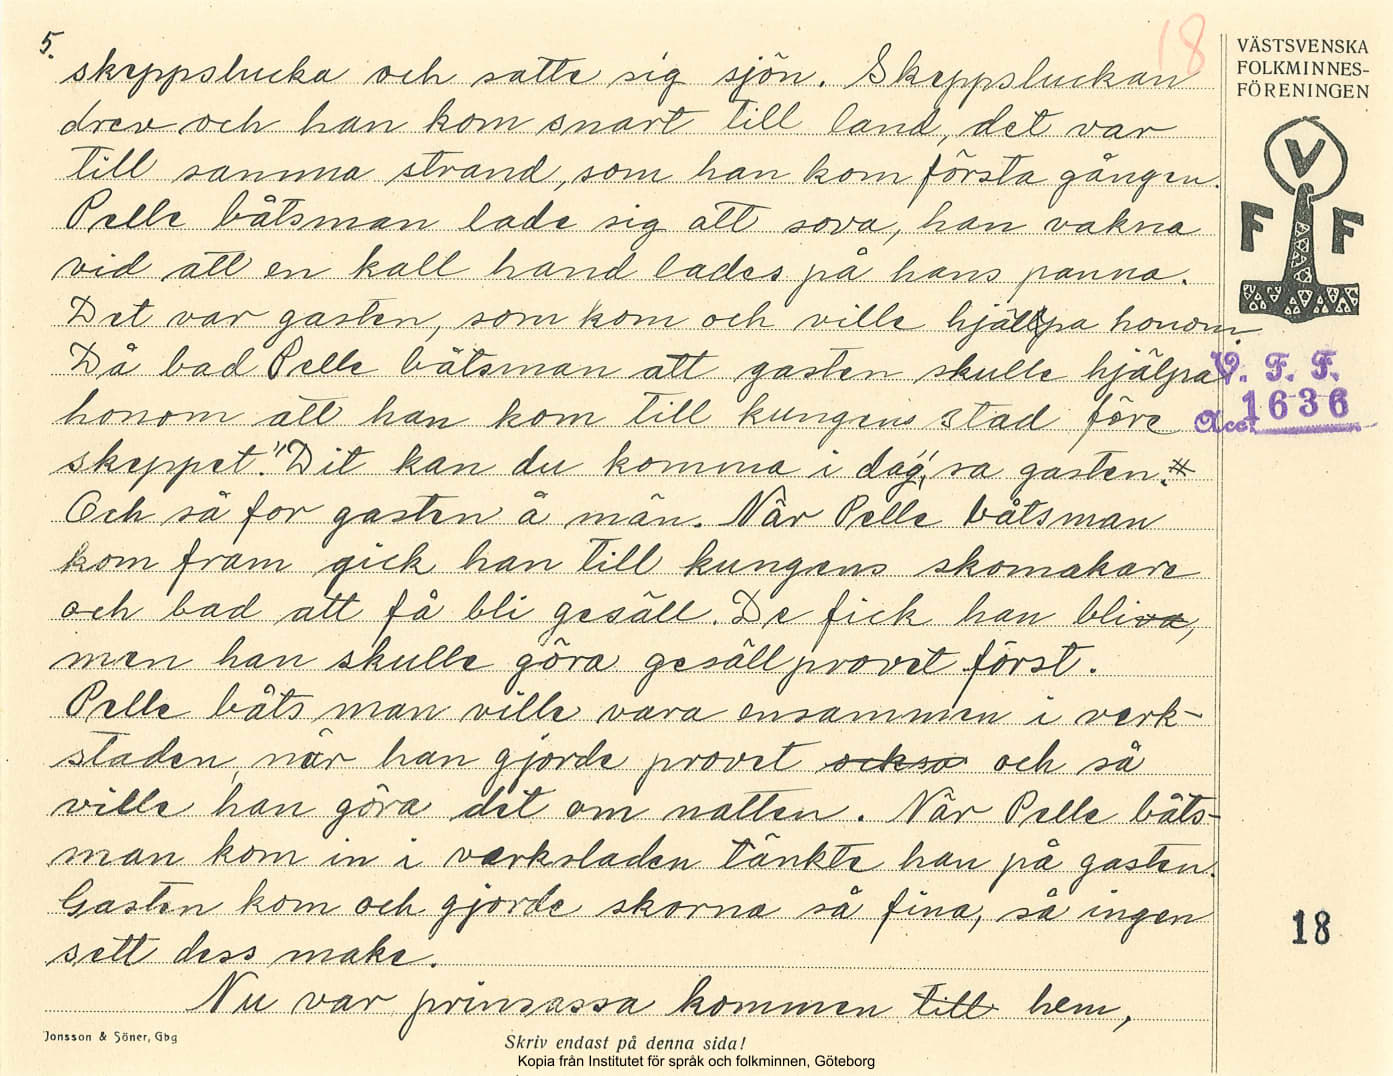 5.
18
skeppslucka och satte sig sjön. Skeppsluckan
drev och han kom snart till land, det var
till samma strand, som han kom första gången.
Pelle båtsman lade sig att sova, han vakna
vid att en kall hand lades på hans panna.
Det var gasten, som kom och ville hjälpa honom.
Då bad Pelle båtsman att gasten skulle hjälpa
honom att han kom till kungens stad före
skeppet. "Dit kan du komma i dag", sa gasten. #
Och så for gasten å män. När Pelle båtsman
kom fram gick han till kungens skomakare
och bad att få bli gesäll. De fick han bliva,
men han skulle göra gesällprovet först.
Pelle båtsman ville vara ensammen i verk-
staden, når han gjorde provet också och så
ville han göra det om natten. När Pelle båts-
man kom in i verksladen tänkte han på gasten.
Gasten kom och gjorde skorna så fina, så ingen
sett dess make.
Nu var prinsessa kommen till hem,
VÄSTSVENSKA
FOLKMINNES-
FÖRENINGEN
V
F F
V. F. F.
Acc. 1636
18
Jonsson & Söner, Gbg
Skriv endast på denna sida!
Kopia från Institutet för språk och folkminnen, Göteborg